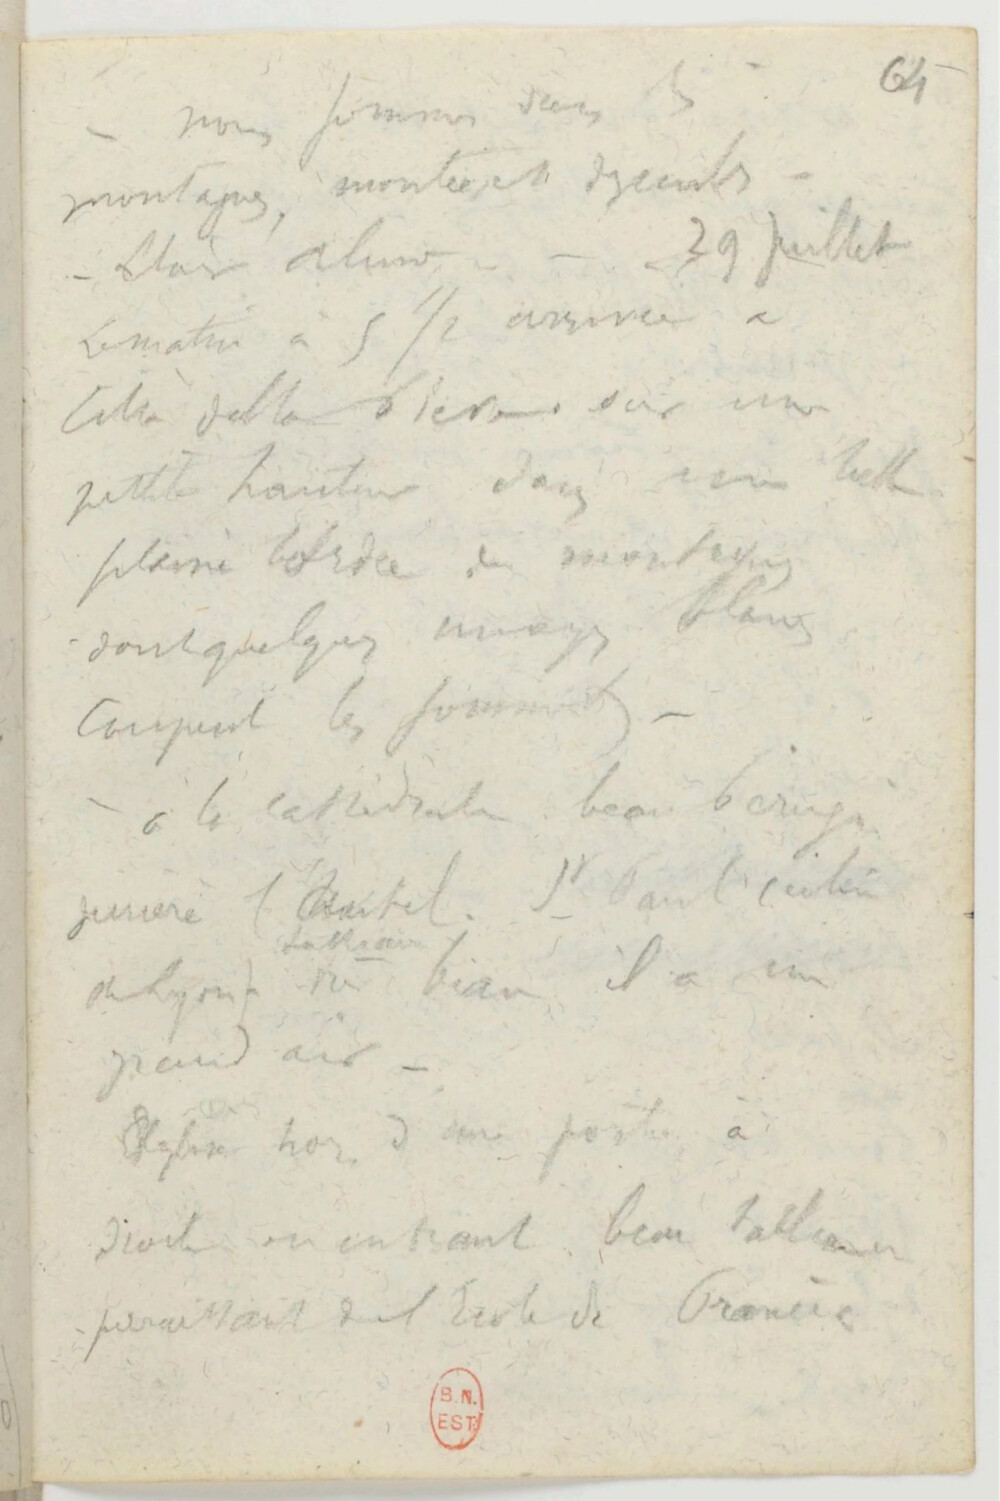 64
- nous sommes dans les
montagnes, montées et descentes -
- 29 juillet
Le matin à 5 1/2 arrivée a
Citta della Pieve. sur une
petite hauteur dans une belle
plaine bordée de montagnes
dont quelques nuages blancs
coupent les sommets -
- à la cathédrale beau Perugin
derière l'autel. St Paul
tableau
de Lyon bien il a un
grand air -
Eglise hors d'une porte à
droite en entrant beau tableau
paraissant de l'Ecole de
B.N.
EST.